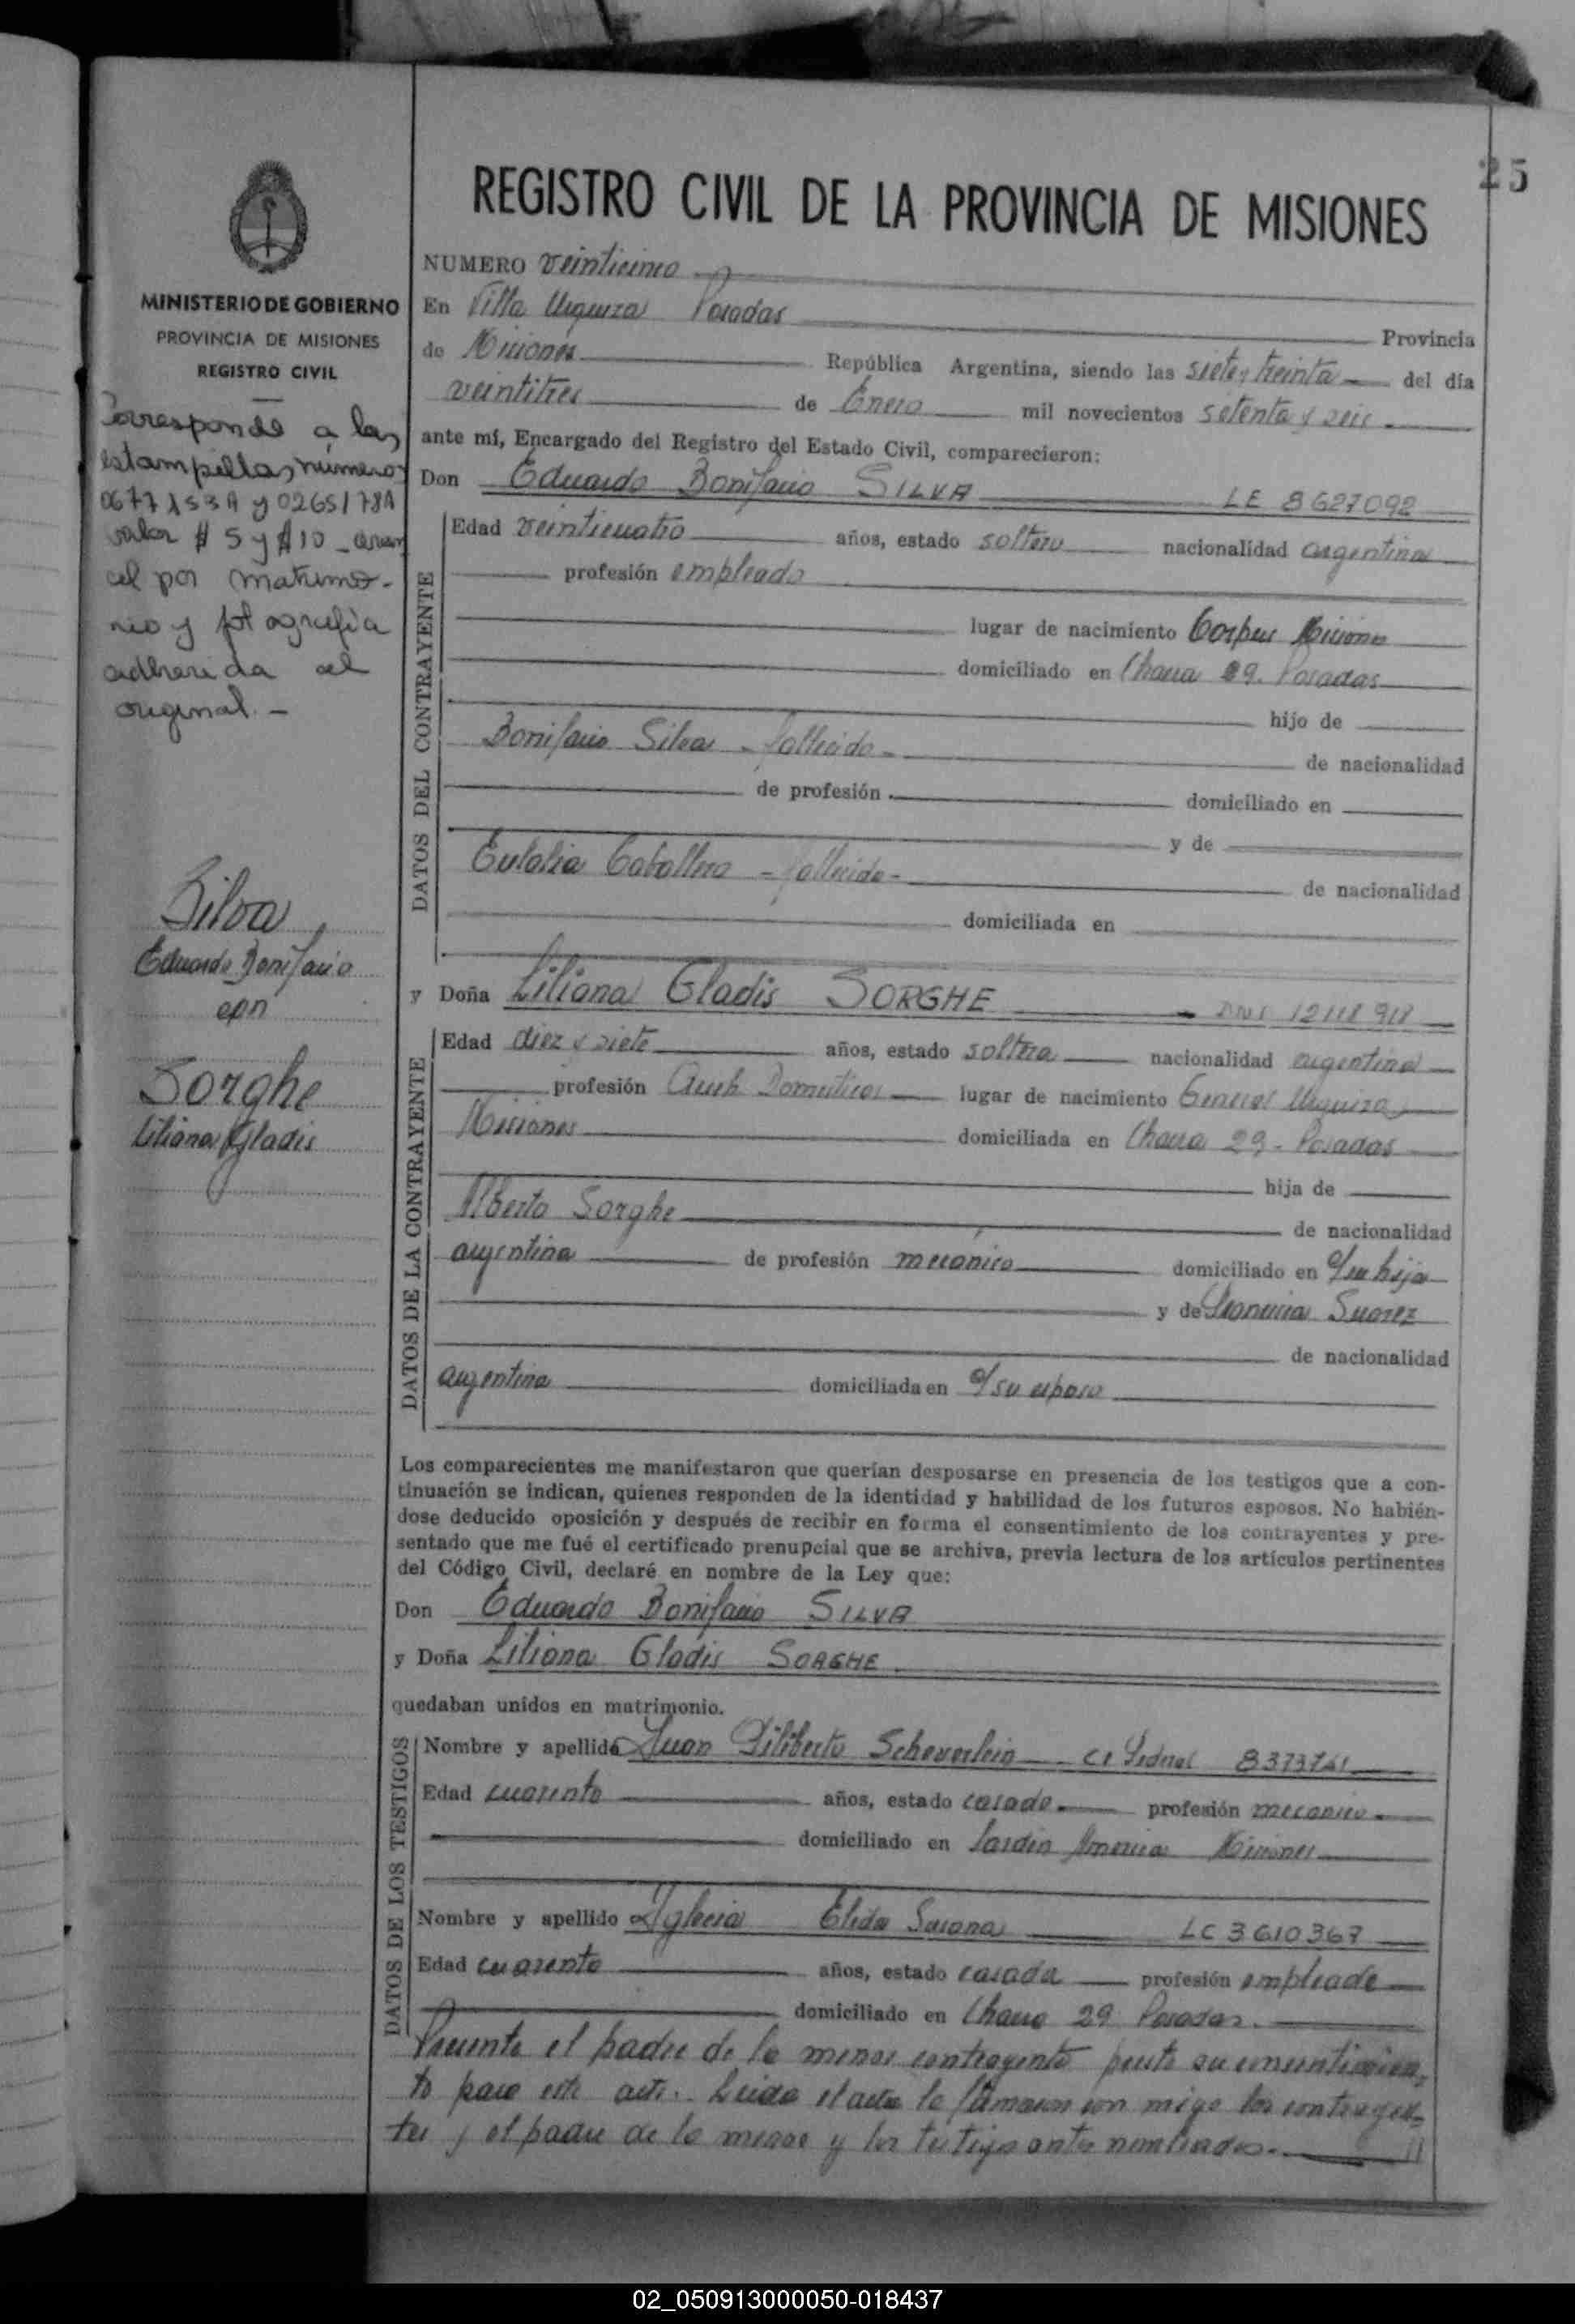 25
REGISTRO CIVIL DE LA PROVINCIA DE MISIONES
MINISTERIO DE GOBIERNO
PROVINCIA DE MISIONES
REGISTRO CIVIL
Corresponde a las
estampillas números
valor $ 5 y $ 10 - aran
cel por matrimo-
nio y fotografía
adherida al
original. -
Silva
Eduardo Bonifacio
con
Sorghe
Liliana Gladis
NUMERO veinticinco
En Villa Urquiza Posadas Provincia
de Misiones República Argentina, siendo las siete y treinta del día
veintitres de Enero mil novecientos setenta y seis
ante mí, Encargado del Registro del Estado Civil, comparecieron:
Don Eduardo Bonifacio SILVA LE 8627092
DATOS DEL CONTRAYENTE
Edad veinticuatro años, estado soltero nacionalidad argentina
profesión empleado
lugar de nacimiento Corpus Misiones
domiciliado en Chacra 29. Posadas
hijo de
Bonifacio Silva - fallecido - de nacionalidad
de profesión domiciliado en
y de
Eulalia Caballero - fallecida - de nacionalidad
domiciliada en
y Doña Liliana Gladis SORGHE DNI
DATOS DE LA CONTRAYENTE
Edad diez y siete años, estado soltera nacionalidad argentina
profesión Queh Domesticos lugar de nacimiento General Urquiza
Misiones domiciliada en Chacra 29 - Posadas
hija de
Alberto Sorghe de nacionalidad
argentina de profesión mecánico domiciliado en c/su hija
y de Suarez
de nacionalidad
argentina domiciliada en c/su esposo
Los comparecientes me manifestaron que querían desposarse en presencia de los testigos que a con-
tinuación se indican, quienes responden de la identidad y habilidad de los futuros esposos. No habién-
dose deducido oposición y después de recibir en forma el consentimiento de los contrayentes y pre-
sentado que me fué el certificado prenupcial que se archiva, previa lectura de los artículos pertinentes
del Código Civil, declaré en nombre de la Ley que:
Don Eduardo Bonifacio SILVA
y Doña Liliana Gladis SORGHE
quedaban unidos en matrimonio.
DATOS DE LOS TESTIGOS
Nombre y apellido Juan Filiberto Scheverlein CI Federal
Edad cuarenta años, estado casado profesión mecanico
domiciliado en Jardin America Misiones
Nombre y apellido Iglecia Elida LC 3610367
Edad cuarenta años, estado casada profesión empleade
domiciliado en Chacra 29 Posadas
Presente el padre de la menor contrayente presta su consentimien-
to para este acto. Leida el acta la firmaron con migo los contrayen-
tes y el padre de la menor y los testigos antes nombrados. -
02_050913000050-018437